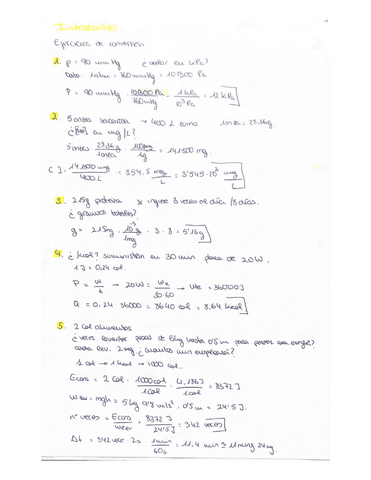 Introducción
Ejercicios de conversión
1. P = 90 mmHg ¿valor en kPa?
Dato: 1 atm = 760 mmHg = 101300 Pa
P = 90 mmHg · 101300 Pa / 760 mmHg · 1 kPa / 10³ Pa = 12 kPa
2. 5 onzas sacarosa → 400 L 1 onza = 28'36g
¿[ ] en mg/L?
5 onzas · 28'36g / 1 onza · mg / 1g = 141.500 mg.
[ ] = 141.800 mg / 400 L = 354'5 mg / L = 3'545·10² mg / L
3. 215g proteína se ingiere 3 veces al día / 8 días.
¿gramos totales?
g = 215mg · 10⁻³g / 1mg · 3 · 8 = 5'16g
4. ¿kcal? suministran en 30 min. 20W.
1J = 0,24 cal.
P = W / t → 20W = We / 30·60 → We = 36000J
Q = 0,24 · 36000 = 8640 cal = 8,64 kcal
5. 2 Cal alimentos
¿veces levantar pesas de 5kg hasta 0'5m para
cada lev. ¿cuántos min
1 Cal → 1 kcal → 1000 cal.
Econs = 2 Cal · 1000cal / 1Cal · 4,186J / 1cal = 8372 J
Wlev = mgh = 5kg · 9'8 m/s² · 0'5 m = 24'5 J.
nº veces = Econs / Wlev = 8372 J / 24'5 J = 342 veces
Δt = 342 vece · 2s · 1min / 60s = 11,4 min ≈ 11min y 24sg.